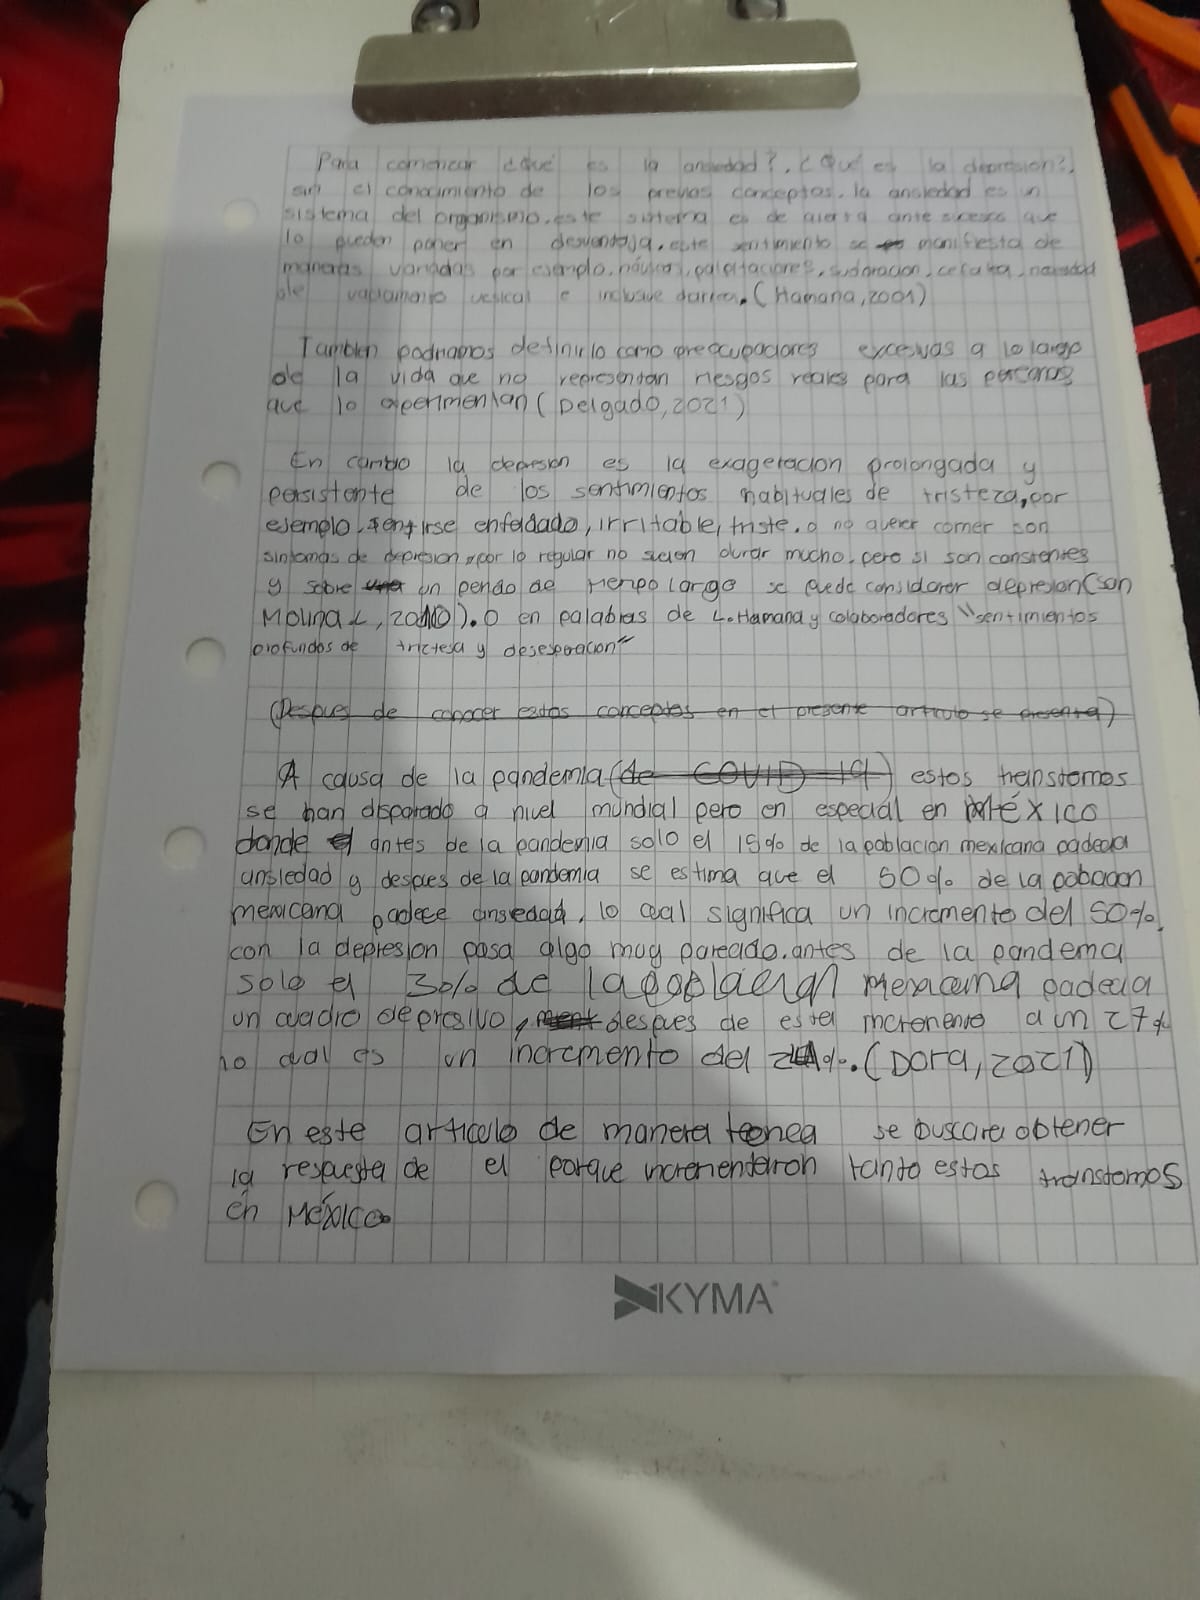 Para comenzar ¿Qué es la ansiedad?. ¿Qué es la depresion?.
sin el conocimiento de los previos conceptos. la ansiedad es un
sistema del organismo. este sistema es de alerta ante sucesos que
lo pueden poner en desventaja. este sentimiento se manifiesta de
maneras variadas por ejemplo. náuseas, palpitaciones, sudoracion, cefalea, necesidad
de vaciamiento vesical e inclusive diarrea. (Hamana, 2001)
Tambien podriamos definirlo como preocupaciones excesivas a lo largo
de la vida que no representan riesgos reales para las personas
que lo experimentan (Delgado, 2021)
En cambio la depresion es la exageracion prolongada y
persistente de los sentimientos habituales de tristeza, por
ejemplo, sentirse enfadado, irritable, triste. o no querer comer son
sintomas de depresion, por lo regular no suelen durar mucho. pero si son constantes
y sobre un periodo de tiempo largo se puede considarar depresion (San
Molina L, 2010). O en palabras de L. Hamana y colaboradores "sentimientos
profundos de trictesa y desesperacion"
(Despues de conocer estos conceptos en el presente articulo se presenta)
A causa de la pandemia (de COVID 19) estos transtornos
se han disparado a nivel mundial pero en especial en MÉXICO
donde antes de la pandemia solo el 15% de la poblacion mexicana padecia
ansiedad y despues de la pandemia se estima que el 50% de la poblacion
mexicana padece ansiedad, lo cual significa un incremento del 50%.
con la depresion pasa algo muy parecido. antes de la pandemia
solo el 3% de la poblacion mexicana padecia
un cuadro depresivo, despues de esta incremento a un 27%
lo cual es un incremento del 24%. (Dora, 2021)
En este articulo de manera teonea se buscara obtener
la respuesta de el porque incrementaron tanto estos transtornos
en México
KYMA